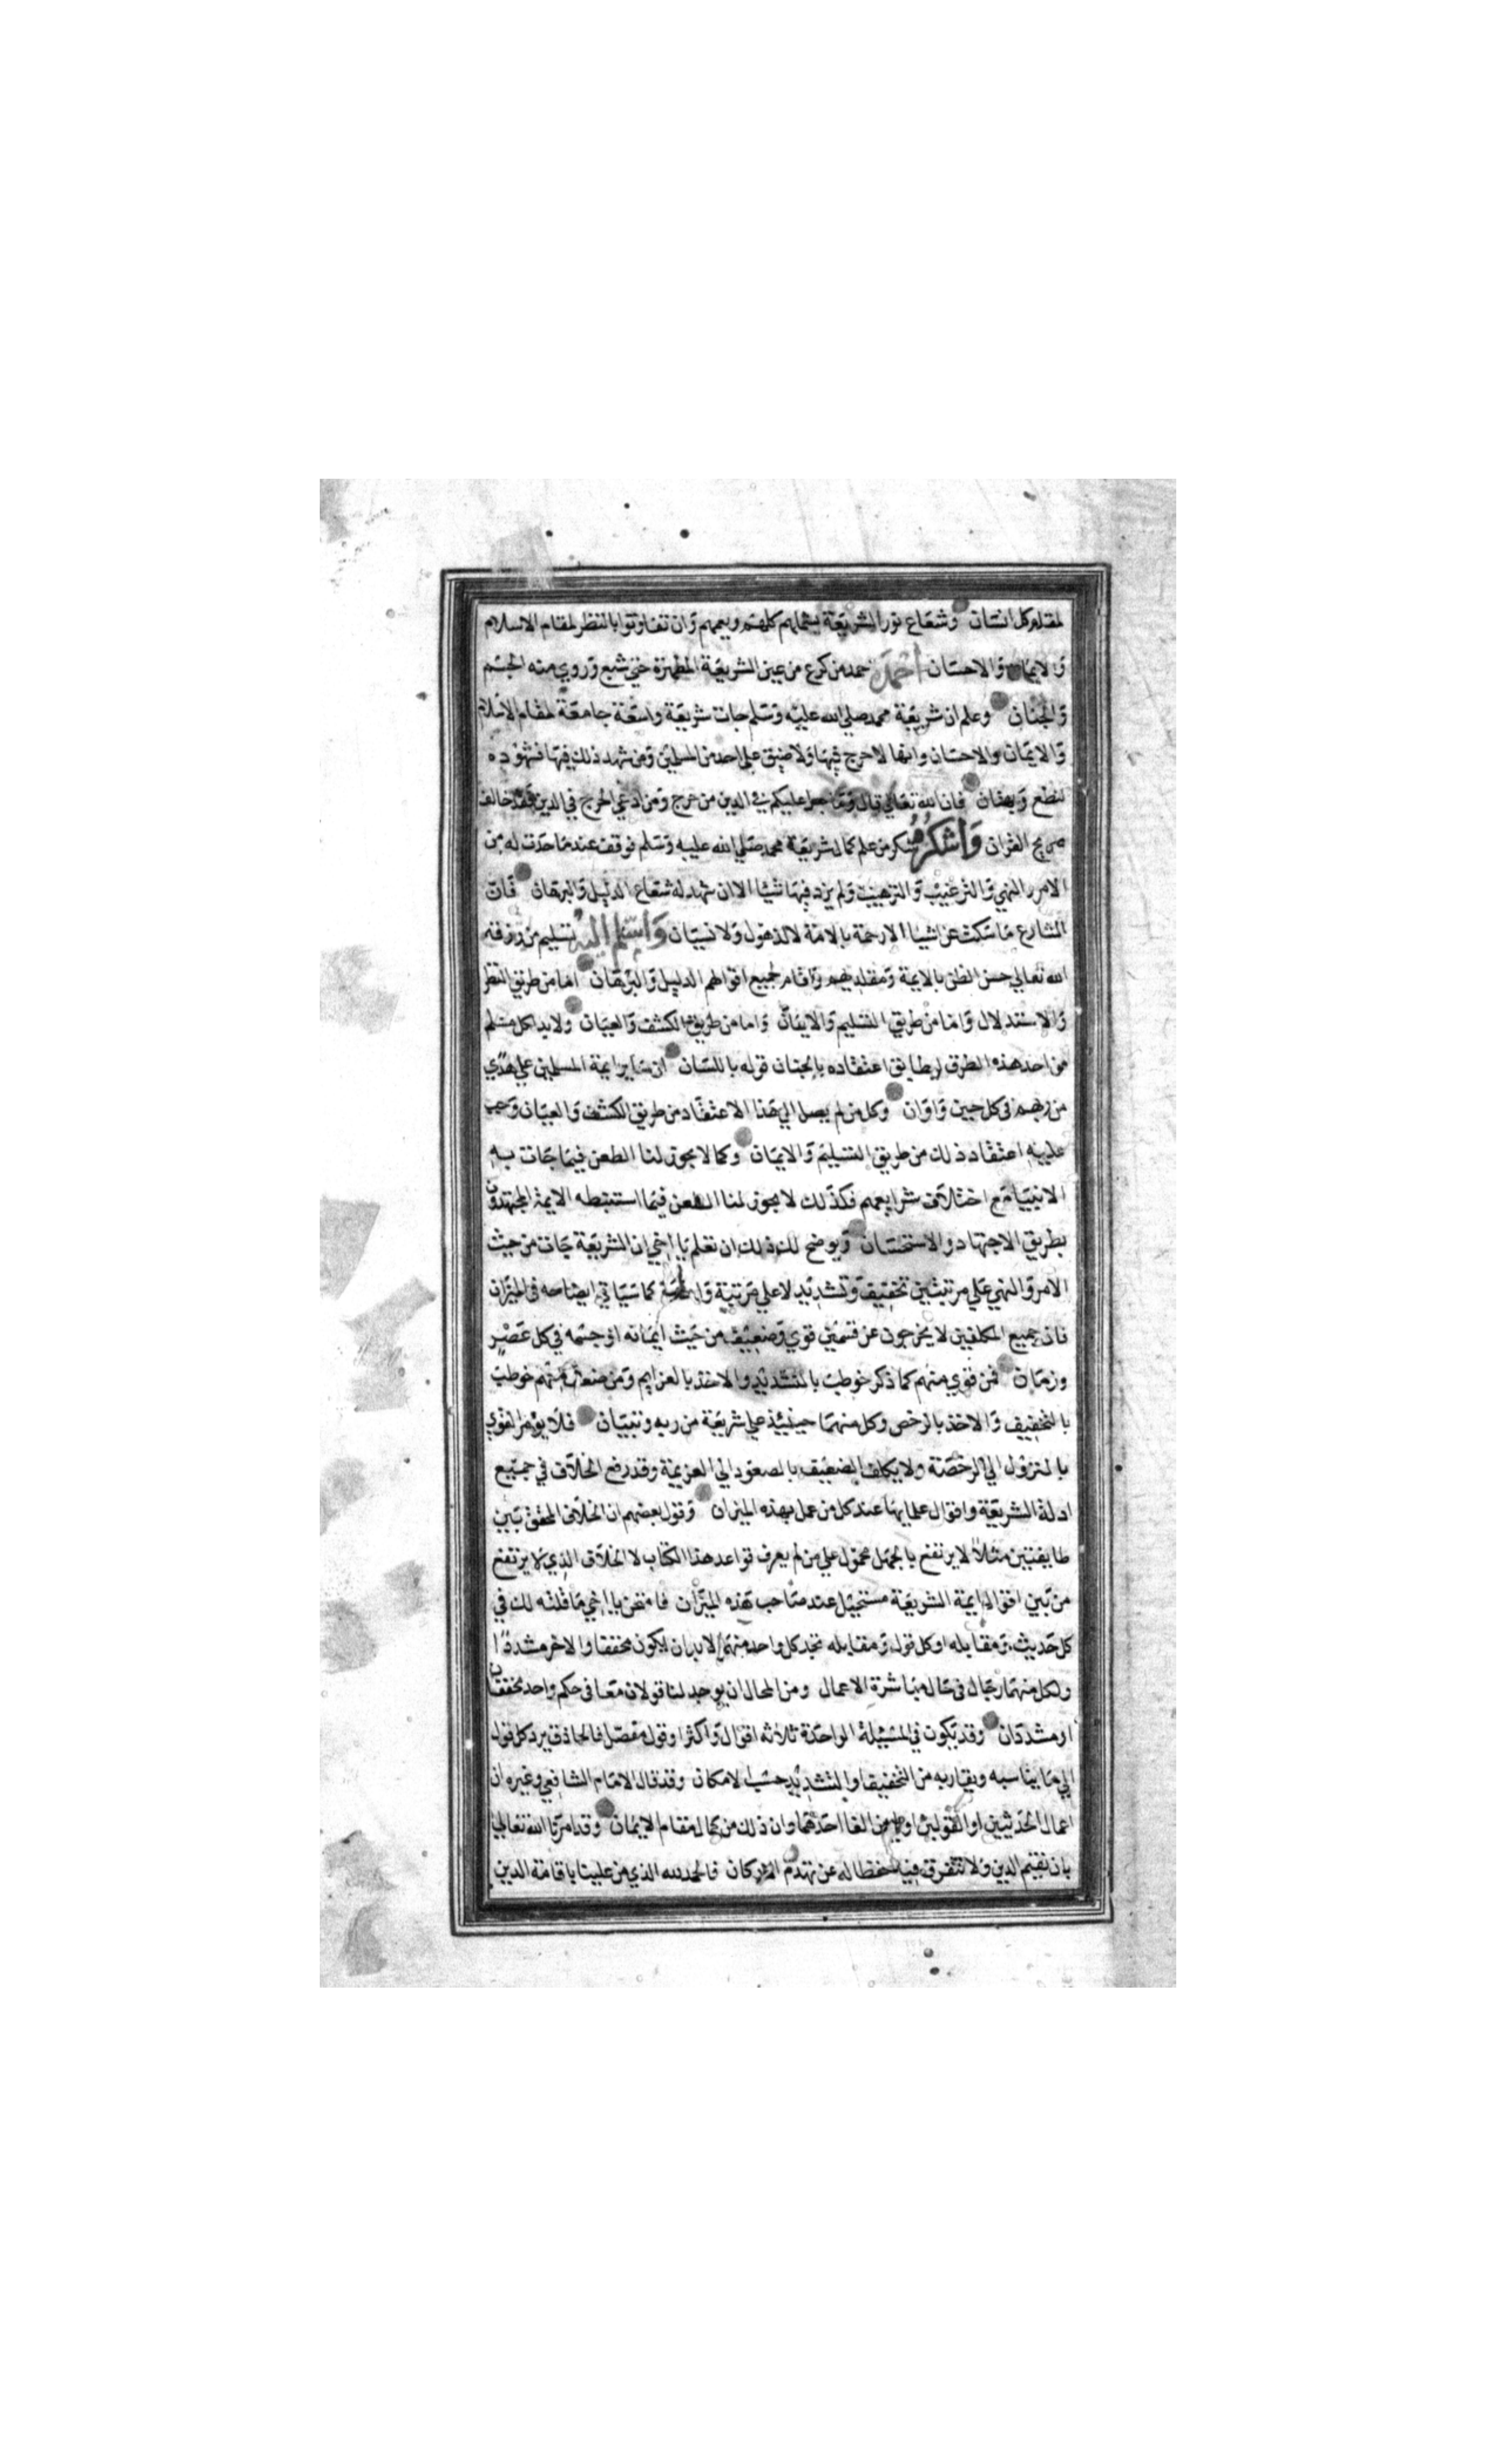 لمقلد كل انسان وشعاع نور الشريعة يشملهم كلهم ويعمهم وان تفاوتوا بالنظر لمقام الاسلام
والايمان والاحسان احمده حمد من كرع من عين الشريعة المطهرة حتي شبع وروي منه الجسم
والجنان وعلم ان شريعة محمد صلي الله عليه وسلم جات شريعة واسعة جامعة لمقام الاسلام
والايمان والاحسان وانها لا حرج فيها ولا ضيق علي احد من المسلمين ومن شهد ذلك فيها فشهوده
تنطع وبهتان فان الله تعالي قال وما جعل عليكم في الدين من حرج ومن ادعي الحرج في الدين فقد خالف
صريح القران واشكره شكر من علم كمال شريعة محمد صلي الله عليه وسلم فوقف عند ما حدت له من
الامر والنهي والترغيب والترهيب ولم يزد فيها شيا الا ان شهد له شعاع الدليل والبرهان فان
الشارع ما سكت عن اشيا الا رحمة بالامة لا لذهول ولا نسيان واسلم اليه تسليم من رزقه
الله تعالي حسن الظن بالايمة ومقلديهم واقام لجميع اقوالهم الدليل والبرهان اما من طريق النظر
والاستدلال واما من طريق التسليم والايمان واما من طريق الكشف والعيان ولا بد لكل مسلم
من احد هذه الطرق ليطابق اعتقاده بالجنان قوله باللسان ان ساير ايمة المسلمين علي هدي
من ربهم في كل حين واوان وكل من لم يصل الي هذا الاعتقاد من طريق الكشف والعيان وجب
عليه اعتقاد ذلك من طريق التسليم والايمان وكما لا يجوز لنا الطعن فيما جات به
الانبيا مع اختلاف شرايعهم فكذلك لا يجوز لنا الطعن فيما استنبطه الايمة المجتهدون
بطريق الاجتهاد والاستحسان ويوضح لك ذلك ان تعلم يا اخي ان الشريعة جات من حيث
الامر والنهي علي مرتبتين تخفيف وتشديد لا علي مرتبة واحدة كما سياتي ايضاحه في الميزان
فان جميع المكلفين لا يخرجون عن قسمين قوي وضعيف من حيث ايمانه او جسمه في كل عصر
وزمان فمن قوي منهم كما ذكر خوطب بالتشديد والاخذ بالعزايم ومن ضعف منهم خوطب
بالتخفيف والاخذ بالرخص وكل منهما حينيذ علي شريعة من ربه وتبيان فلا يؤمر القوي
بالنزول الي الرخصة ولا يكلف الضعيف بالصعود الي العزيمة وقد رفع الخلاف في جميع
ادلة الشريعة واقوال علمايها عند كل من عمل بهذه الميزان وقول بعضهم ان الخلاف المحقق بين
طايفتين مثلا لا يرتفع بالحمل محمول علي من لم يعرف قواعد هذا الكتاب لان الخلاف الذي لا يرتفع
من بين اقوال ايمة الشريعة مستحيل عند صاحب هذه الميزان فامتحن يا اخي ما قلته لك في
كل حديث ومقابله او كل قول ومقابله تجد كل واحد منهما لا بد ان يكون مخففا والاخر مشددا
ولكل منهما رجال في حال مباشرة الاعمال ومن المحال ان يوجد لنا قولان معا في حكم واحد مخففان
او مشددان وقد يكون في المسيلة الواحدة ثلاثة اقوال واكثر او قول مفصل فالحاذق يرد كل قول
الي ما يناسبه ويقاربه من التخفيف والتشديد حسب الامكان وقد قال الامام الشافعي وغيره ان
اعمال الحديثين او القولين اولي من الغا احدهما وان ذلك من كمال مقام الايمان وقد امرنا الله تعالي
بان نقيم الدين ولا نتفرق فيه حفظا له عن تهدم الاركان فالحمد لله الذي من علينا باقامة الدين